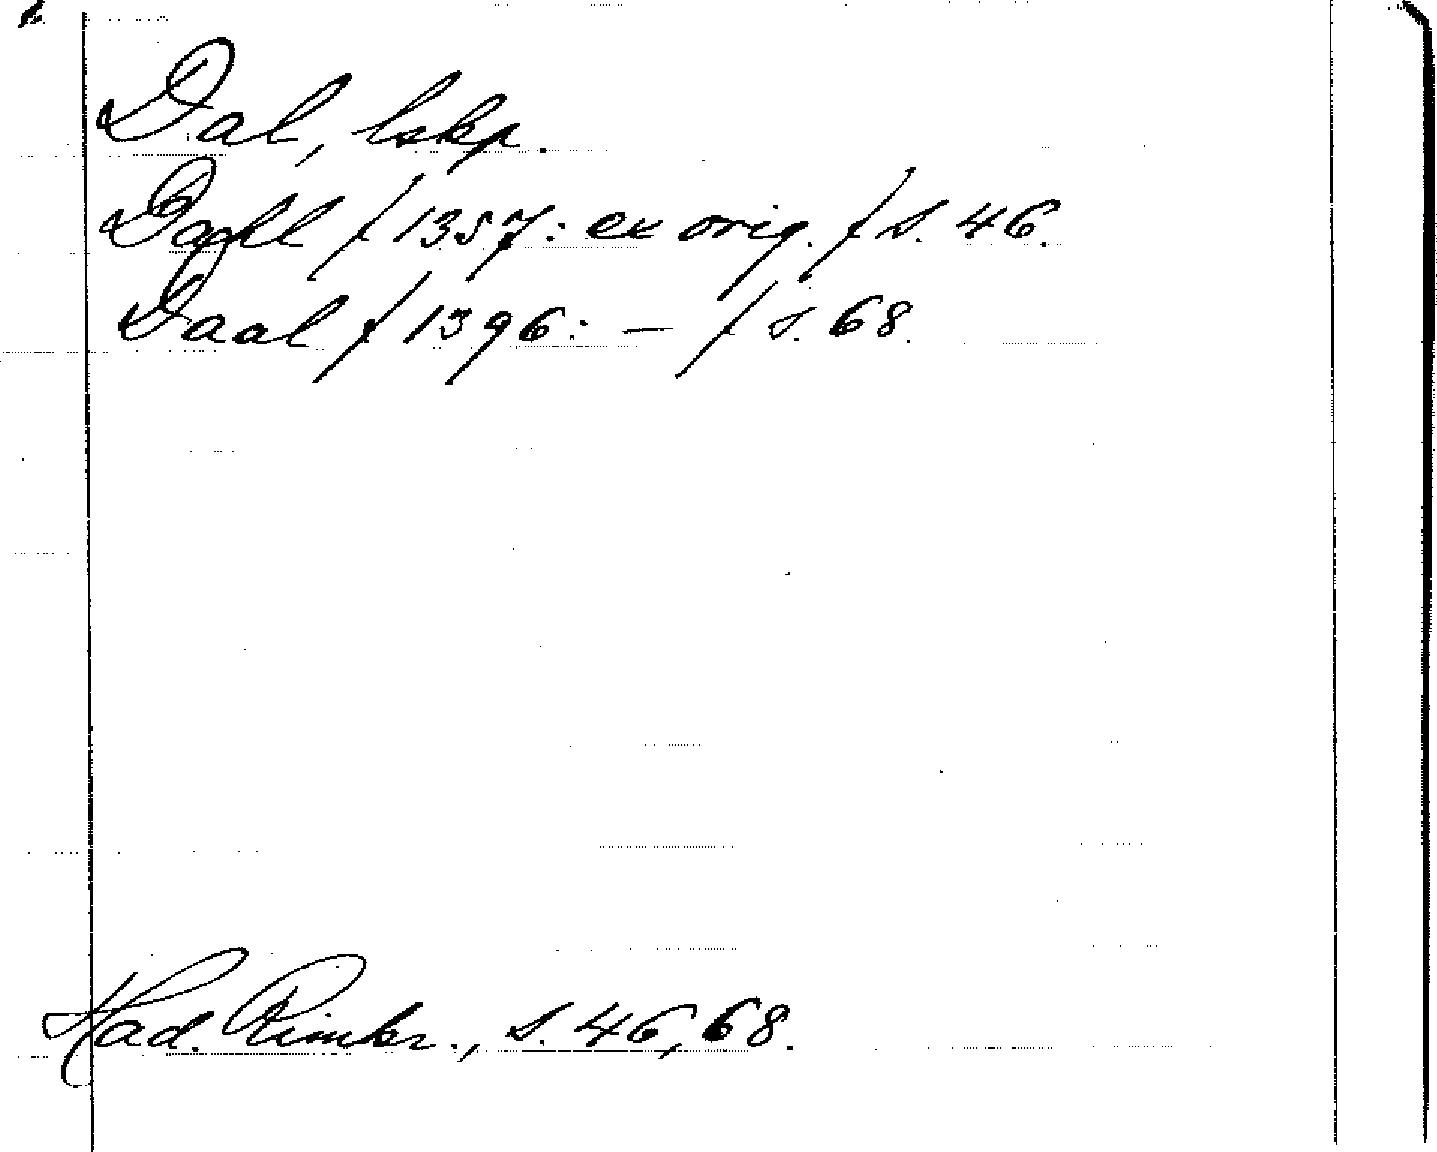 Dal, lskp.
Dahl / 1357: ex orig. / s. 46.
Daal / 1396: — / s. 68.
Had. Rimkr., s. 46, 68.